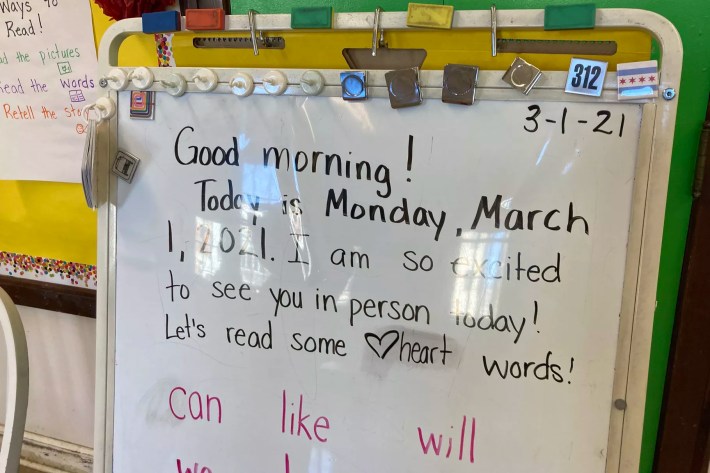 Ways to
Read!
ad the pictures
Read the words
Retell the sto
312
3-1-21
Good morning!
Today is Monday, March
1, 2021. I am so excited
to see you in person today!
Let's read some ♡heart words!
can like will
we